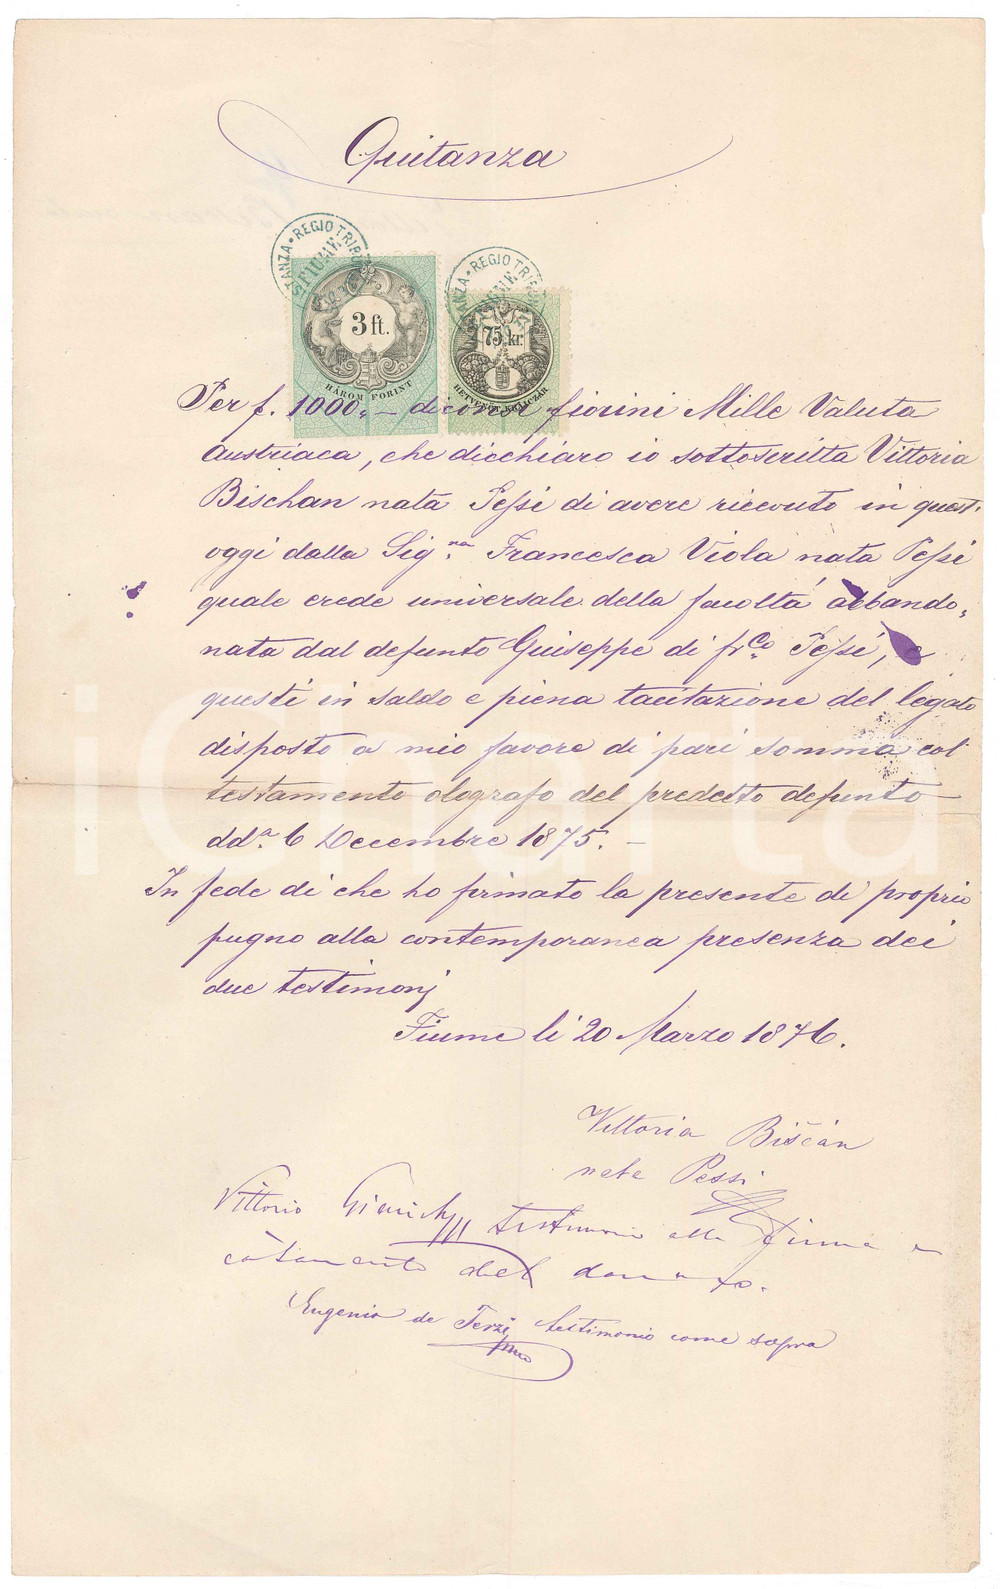 Quitanza
ISTANZA • REGIO TRIBUN
FIUME
STANZA • REGIO TRIBUN
FIUME
3 ft.
HÁROM FORINT
75 kr.
HETVENÖT KRAJCZÁR
Per f. 1000,- diconsi fiorini Mille Valuta
austriaca, che dicchiaro io sottoscritta Vittoria
Bischan nata Pessi di avere ricevuto in quest'
oggi dalla Sig.na Francesca Viola nata Pessi
quale erede universale della facoltá abbando,
nata dal defunto Giuseppe di fr.co Pessi, e
questi in saldo e piena tacitazione del legato
disposto a mio favore di pari somma col
testamento olografo del predetto defunto
dd.a 6 Decembre 1875. -
In fede di che ho firmato la presente di proprio
pugno alla contemporanea presenza dei
due testimonj
Fiume li 20 Marzo 1876.
Vittoria Bišcán
nata Pessi
Vittorio testimonio alla firma e
del
Eugenio de Terzi testimonio come sopra
iCharta